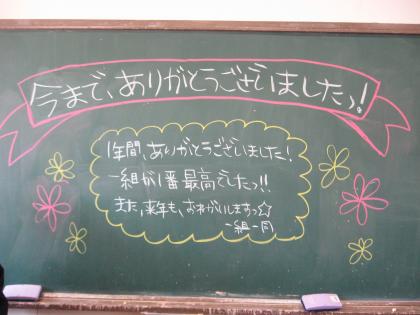 今まで、ありがとうございましたっ!
1年間、ありがとうございました!
一組が1番最高でしたっ!!
また、来年も、おねがいしますっ☆
一組一同